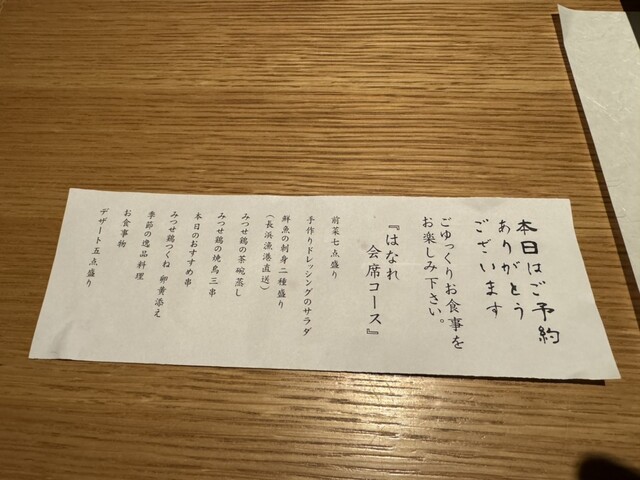 本日はご予約
ありがとう
ございます
ごゆっくりお食事を
お楽しみ下さい。
『はなれ
会席コース』
前菜七点盛り
手作りドレッシングのサラダ
鮮魚の刺身二種盛り
（長浜漁港直送）
みつせ鶏の茶碗蒸し
みつせ鶏の焼鳥三串
本日のおすすめ串
みつせ鶏つくね 卵黄添え
季節の逸品料理
お食事物
デザート五点盛り